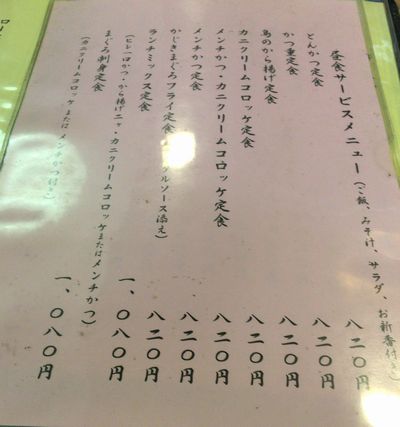 昼食サービスメニュー(ご飯、みそ汁、サラダ、お新香付き)
とんかつ定食 八二〇円
かつ重定食 八二〇円
鳥のから揚げ定食 八二〇円
カニクリームコロッケ定食 八二〇円
メンチかつ・カニクリームコロッケ定食 八二〇円
メンチかつ定食 八二〇円
かじきまぐろフライ定食 ルソース添え) 八二〇円
ランチミックス定食 一、〇八〇円
(ヒレ一口かつ・から揚げ二ヶ・カニクリームコロッケまたはメンチかつ)
まぐろ刺身定食 一、〇八〇円
(カニクリームコロッケまたはメンチかつ付き)